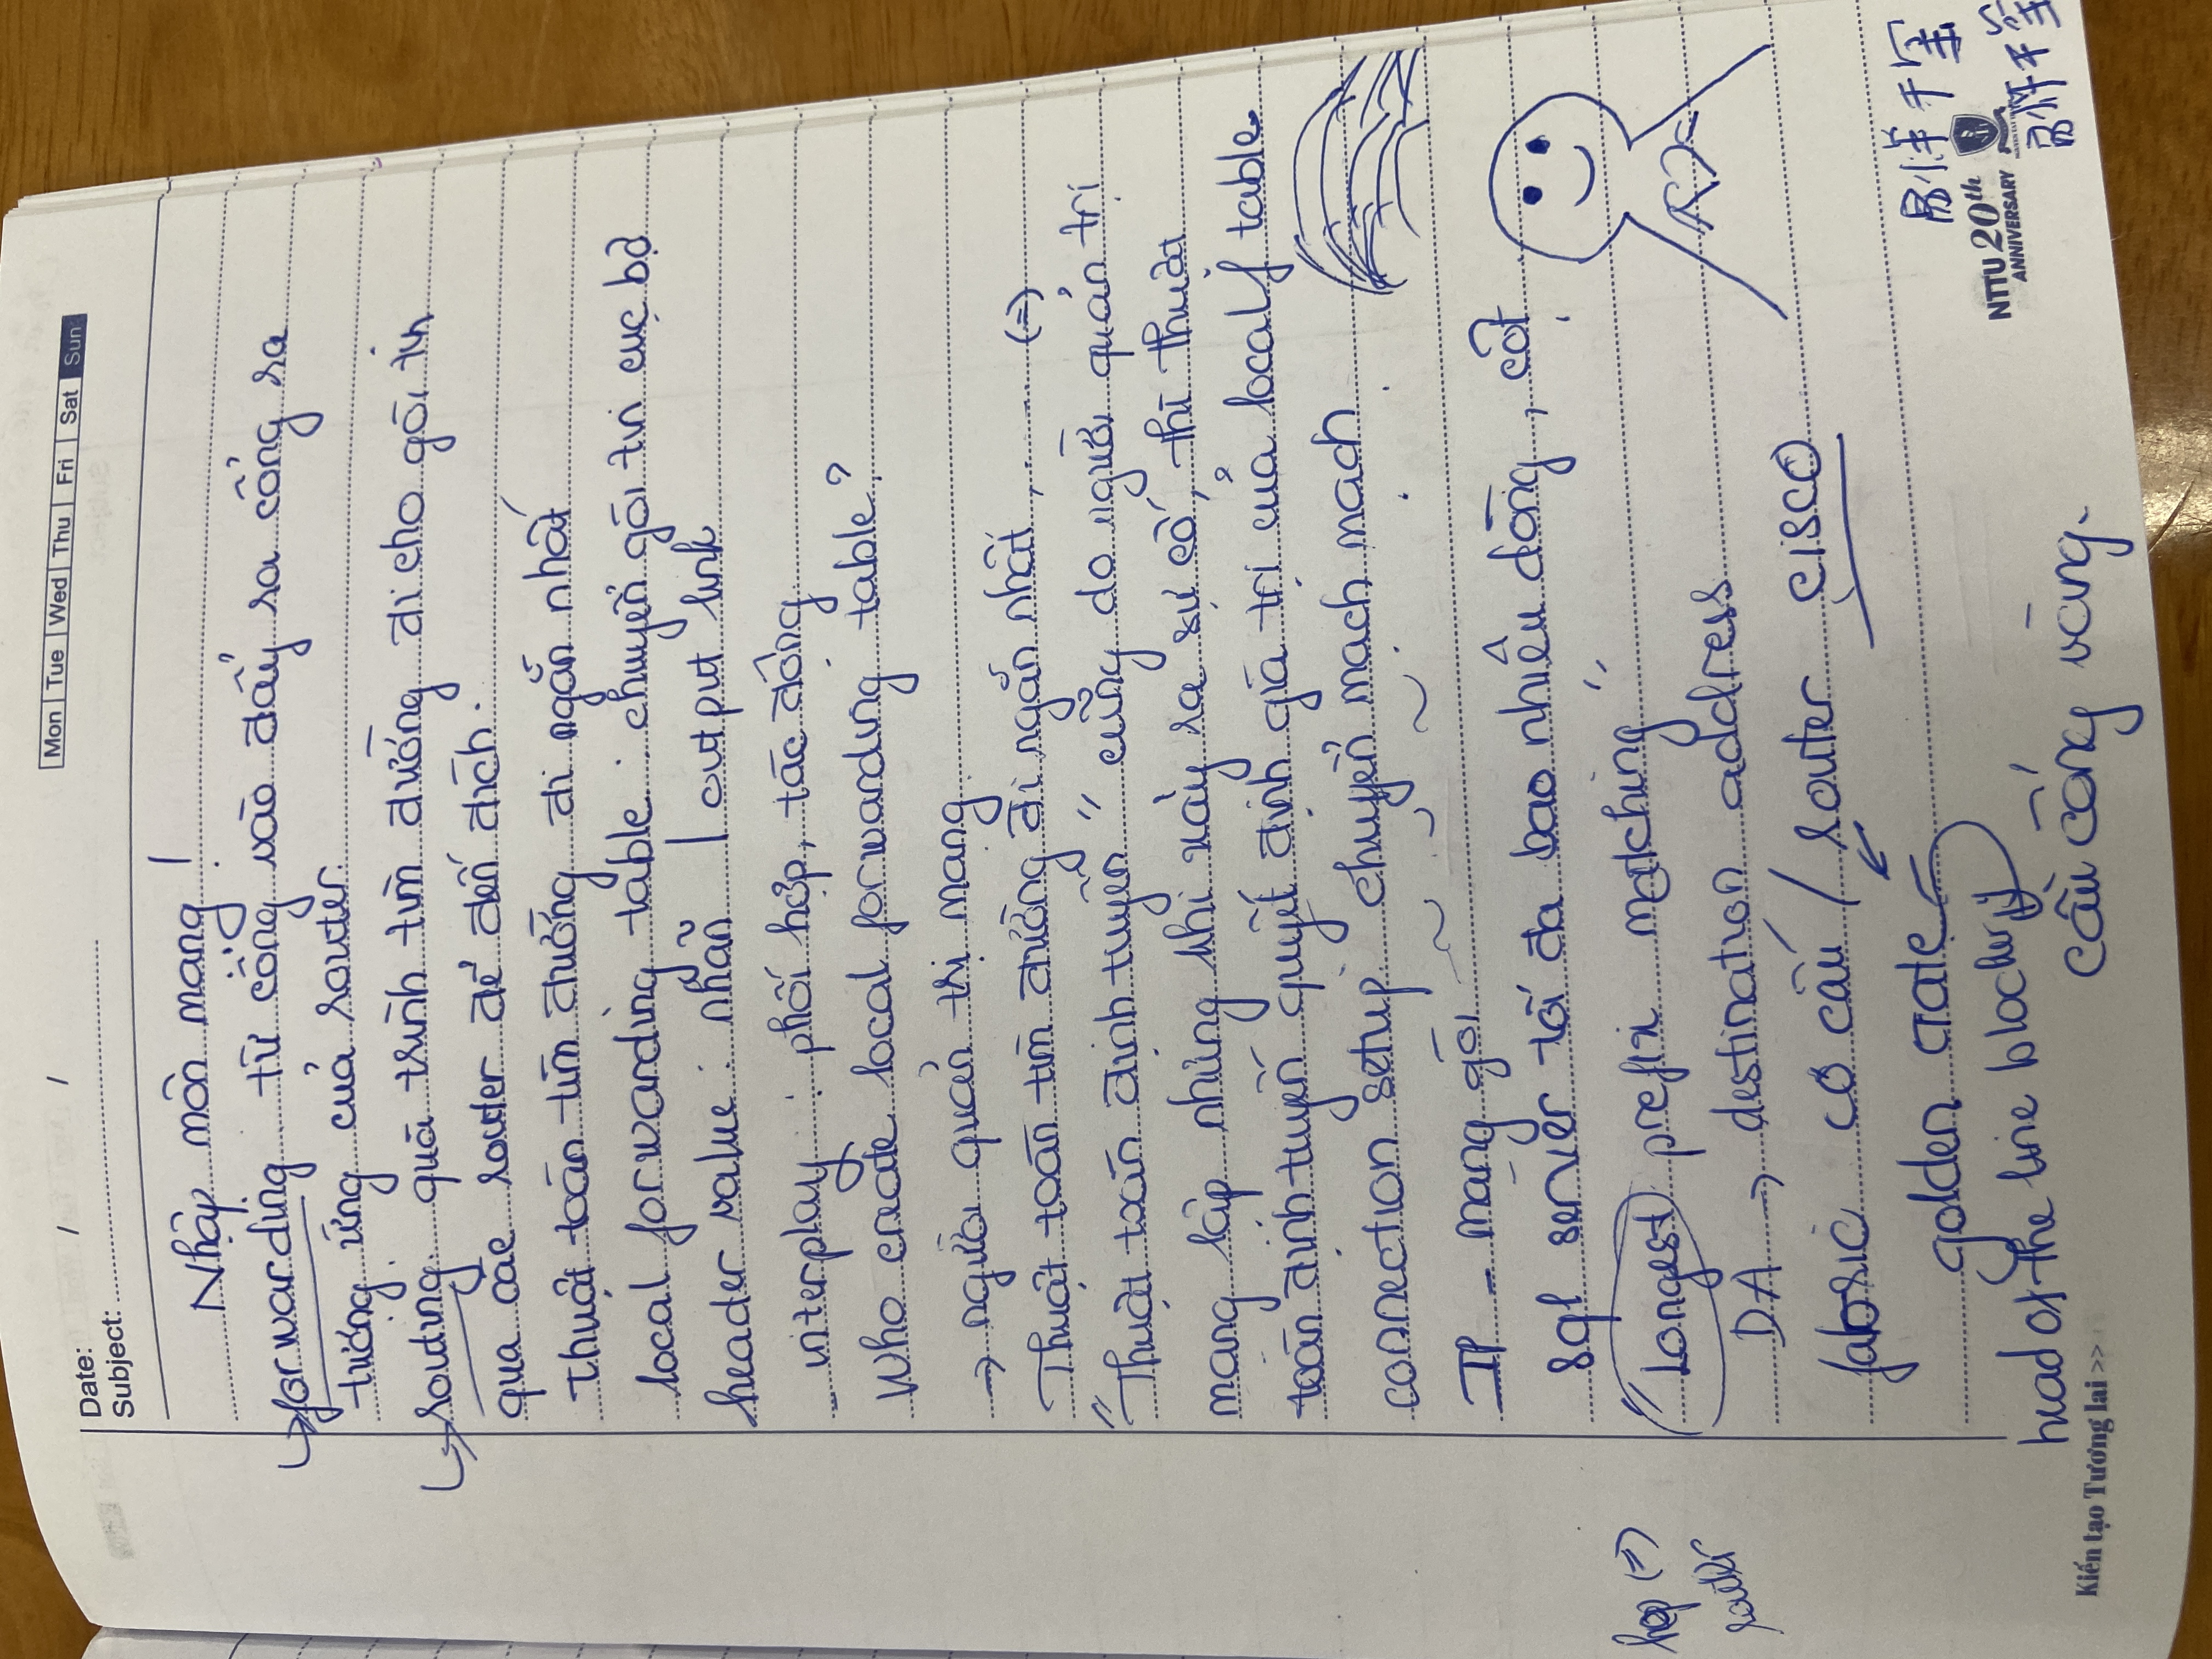 Date: / /
Mon Tue Wed Thu Fri Sat Sun
Subject:
Nhập môn mạng !
↳ forwarding. từ cổng vào đẩy ra cổng ra
tương ứng của router.
↳ routing. quá trình tìm đường đi cho gói tin
qua các router để đến đích.
Thuật toán tìm đường đi ngắn nhất
local forwarding table : chuyển gói tin cục bộ
header value : nhãn | output link
- interplay : phối hợp, tác động
Who create local forwarding table?
→ người quản trị mạng
Thuật toán tìm đường đi ngắn nhất, ..... (=)
"Thuật toán định tuyến" cũng do người quản trị
mạng lập nhưng khi xảy ra sự cố, thì thuật
toán định tuyến quyết định giá trị của local f table
connection setup. chuyển mạch mạch
IP - mạng gói
sql server tối đa bao nhiêu dòng, cột
"Longest prefix matching"
hop (=)
router
DA → destination address
fabric cơ cấu / router cisco
golden crate
head of the line
cầu cổng vàng.
易烊千玺
NTTU 20th
ANNIVERSARY
易烊千玺
Kiến tạo Tương lai >>